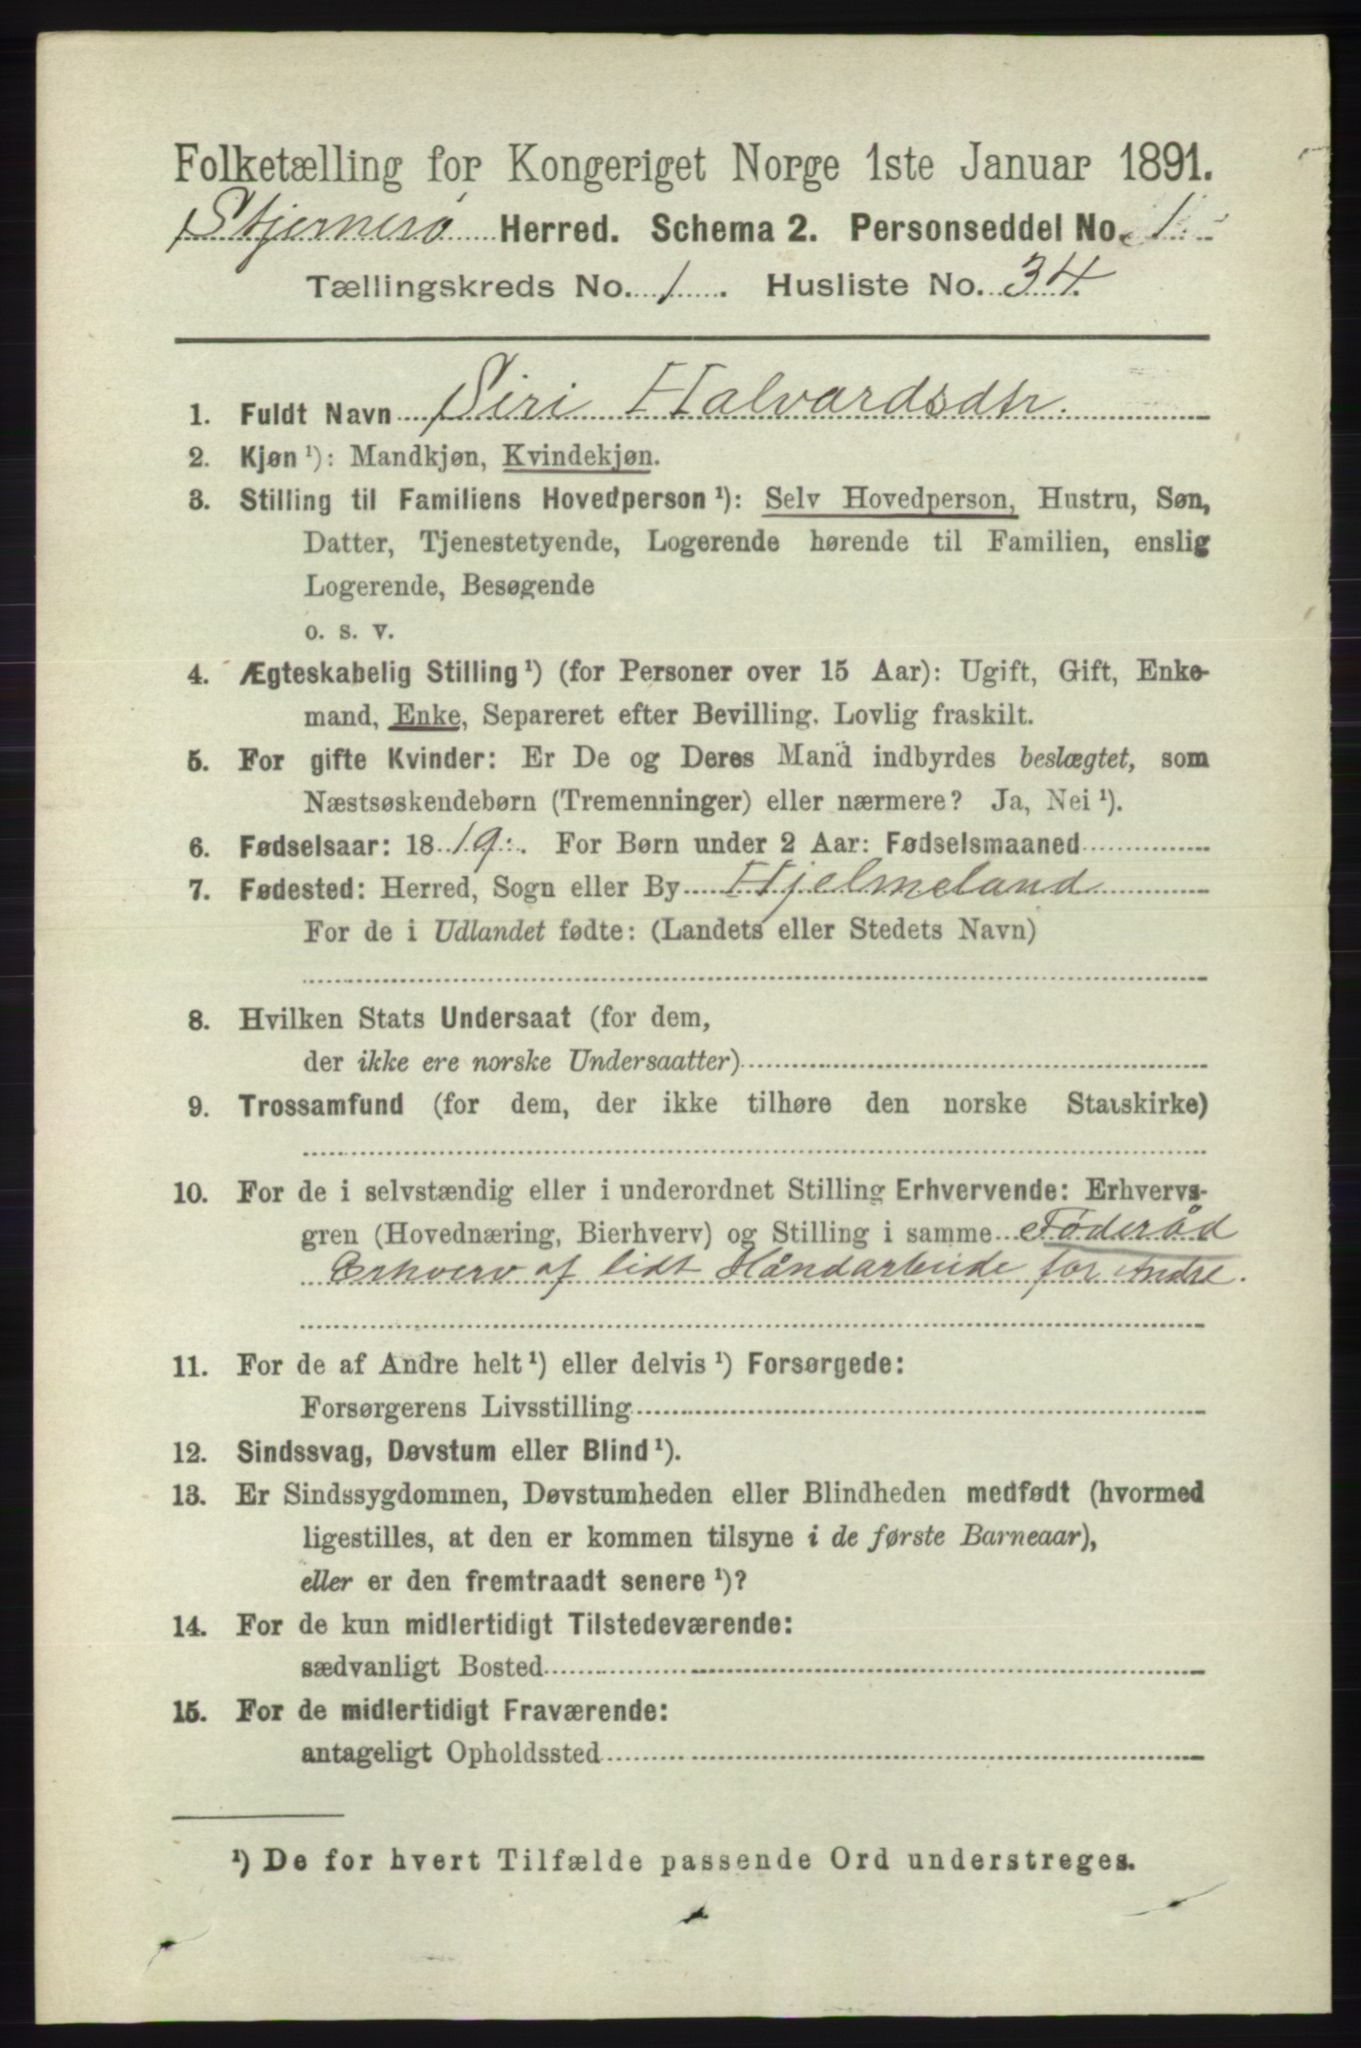 Folketælling for Kongeriget Norge 1ste Januar 1891.
Stjernerø Herred. Schema 2. Personseddel No. 1
Tællingskreds No. 1. Husliste No. 34.
1. Fuldt Navn Siri Halvardsdtr.
2. Kjøn ¹): Mandkjøn, Kvindekjøn.
3. Stilling til Familiens Hovedperson ¹): Selv Hovedperson, Hustru, Søn,
Datter, Tjenestetyende, Logerende hørende til Familien, enslig
Logerende, Besøgende
o. s. v.
4. Ægteskabelig Stilling ¹) (for Personer over 15 Aar): Ugift, Gift, Enke-
mand, Enke, Separeret efter Bevilling. Lovlig fraskilt.
5. For gifte Kvinder: Er De og Deres Mand indbyrdes beslægtet, som
Næstsøskendebørn (Tremenninger) eller nærmere? Ja, Nei ¹).
6. Fødselsaar: 1819. For Børn under 2 Aar: Fødselsmaaned
7. Fødested: Herred, Sogn eller By Hjelmeland
For de i Udlandet fødte: (Landets eller Stedets Navn)
8. Hvilken Stats Undersaat (for dem,
der ikke ere norske Undersaatter)
9. Trossamfund (for dem, der ikke tilhøre den norske Statskirke)
10. For de i selvstændig eller i underordnet Stilling Erhvervende: Erhvervs-
gren (Hovednæring, Bierhverv) og Stilling i samme Føderåd
Erhverv af lidt Håndarbeide for Andre.
11. For de af Andre helt ¹) eller delvis ¹) Forsørgede:
Forsørgerens Livsstilling
12. Sindssvag, Døvstum eller Blind ¹).
13. Er Sindssygdommen, Døvstumheden eller Blindheden medfødt (hvormed
ligestilles, at den er kommen tilsyne i de første Barneaar),
eller er den fremtraadt senere ¹)?
14. For de kun midlertidigt Tilstedeværende:
sædvanligt Bosted
15. For de midlertidigt Fraværende:
antageligt Opholdssted
¹) De for hvert Tilfælde passende Ord understreges.